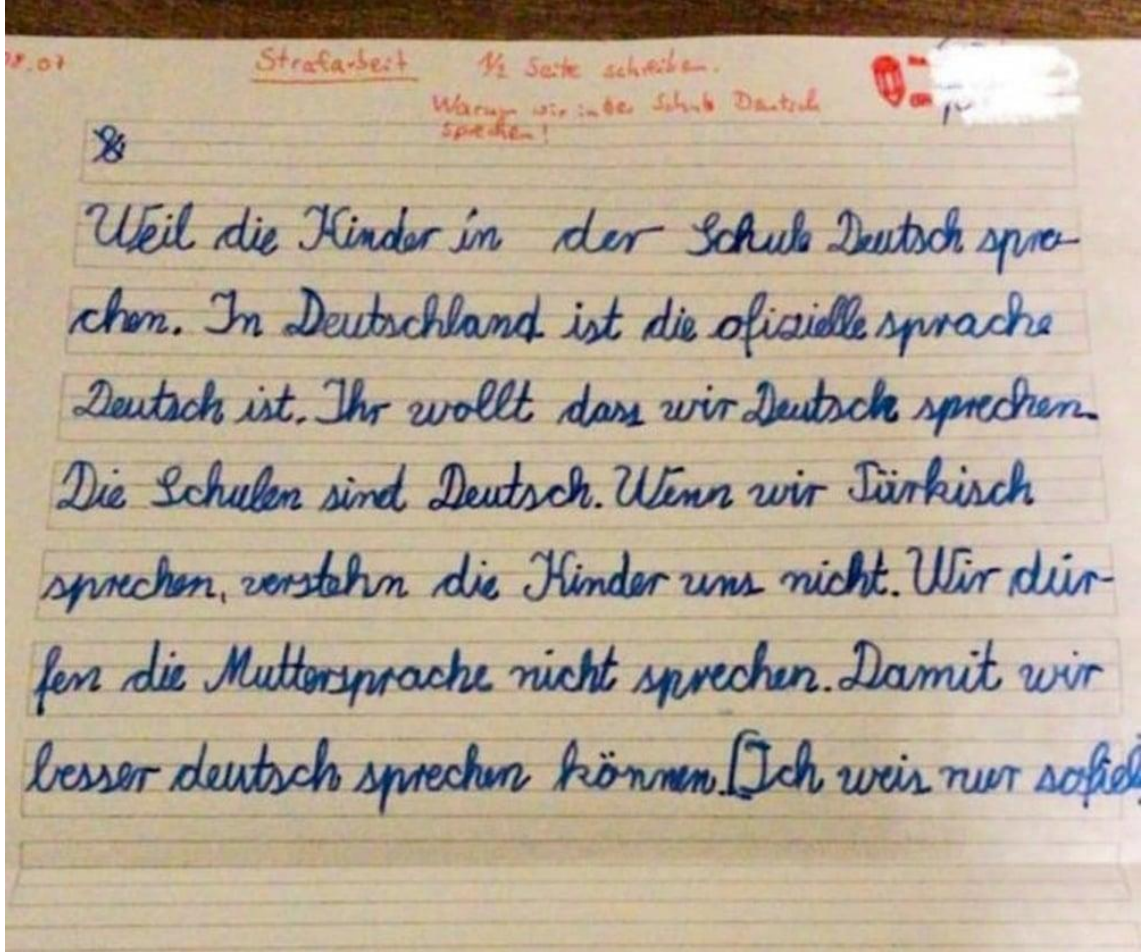 .07
Strafarbeit 1/2 Seite schreiben.
Warum wir in der Schule Deutsch
sprechen!
Weil die Kinder in der Schule Deutsch spre-
chen. In Deutschland ist die ofizielle sprache
Deutsch ist. Ihr wollt dass wir Deutsch sprechen.
Die Schulen sind Deutsch. Wenn wir Türkisch
sprechen, verstehn die Kinder uns nicht. Wir dür-
fen die Muttersprache nicht sprechen. Damit wir
besser deutsch sprechen können. [Ich weis nur sofiel